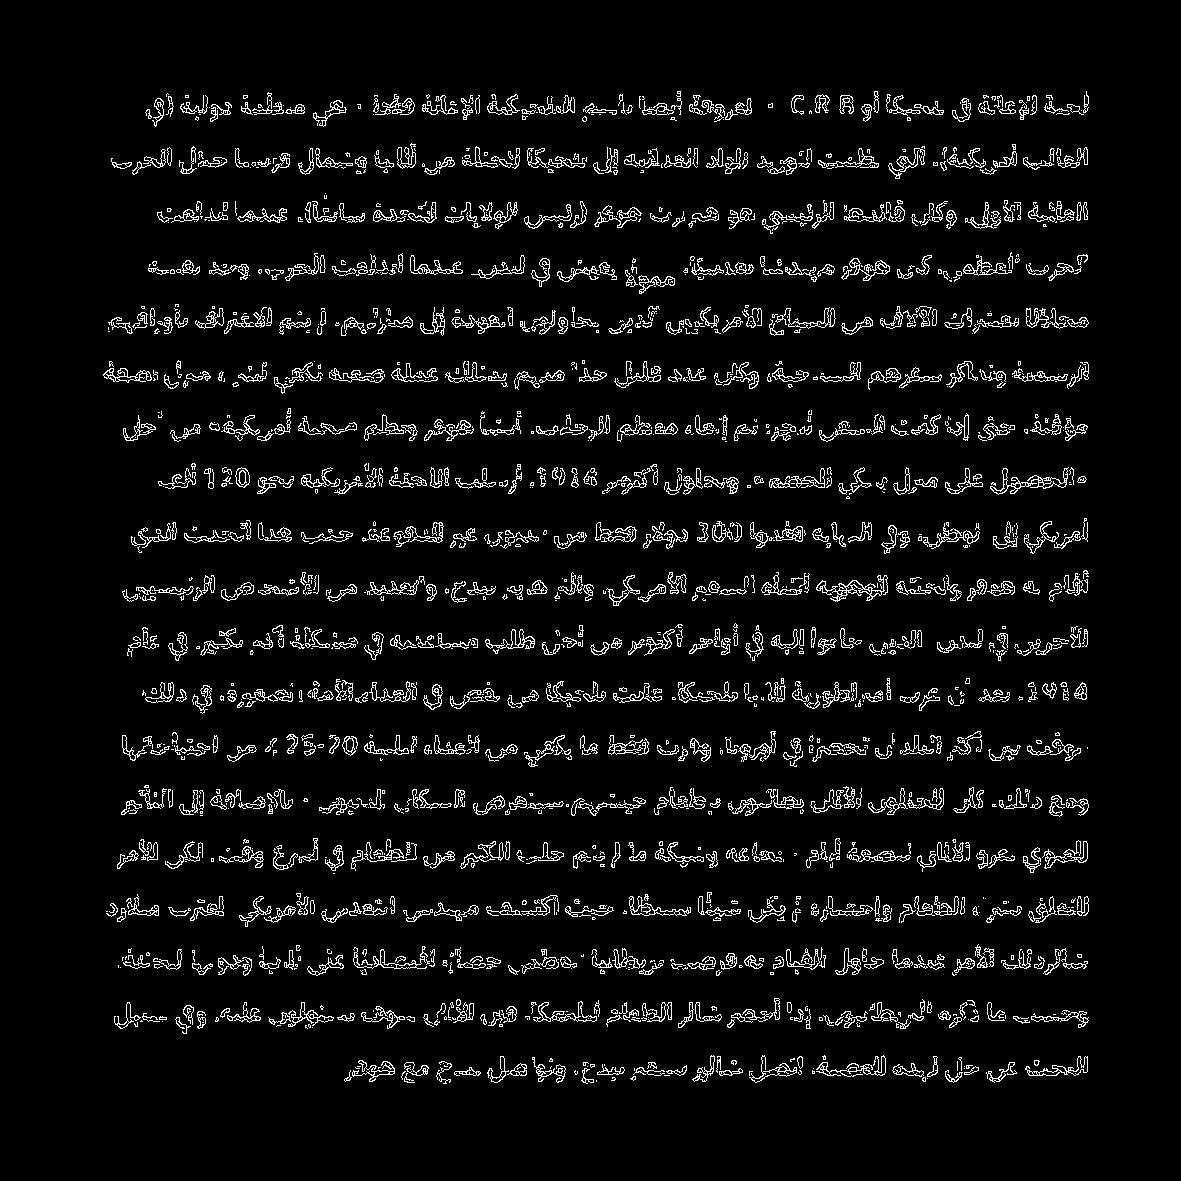 لجنة الإغاثة في بلجيكا أو C.R.B - المعروفة أيضا باسم البلجيكية الإغاثة فقط - هي منظمة دولية (في
الغالب أمريكية). التي نظمت لتوريد المواد الغذائية إلى بلجيكا المحتلة من ألمانيا وشمال فرنسا خلال الحرب
العالمية الأولى. وكان قائدها الرئيسي هو هربرت هوفر (رئيس الولايات المتحدة سابقاً). عندما اندلعت
الحرب العظمى. كان هوفر مهندسا تعدينيًا، ممولاً يعيش في لندن. عندما اندلعت الحرب.. وجد نفسه
محاطًا بعشرات الآلاف من السياح الأمريكيين الذين يحاولون العودة إلى منازلهم. لم يتم الاعتراف بأوراقهم
الرسمية وتذاكر سفرهم السياحية، وكان عدد قليل جداً منهم يمتلك عملة صعبة تكفي لشراء منزل بصفة
مؤقتة. حتى إذا كانت السفن تبحر: تم إلغاء معظم الرحلات. أنشأ هوفر ونظم "لجنة أمريكية" من أجل
"الحصول على منزل يكفي للجميع". وبحلول أكتوبر 1914. أرسلت اللجنة الأمريكية نحو 120 ألف
أمريكي إلى الوطن. وفي النهاية فقدوا 300 دولار فقط من الديون غير المدفوعة. جلب هذا الحدث الذي
أقام به هوفر ولجنته التوجيهية انتباه السفير الأمريكي. والتر هاينز بيدج. والعديد من الأشخاص الرئيسيين
الآخرين في لندن الذين جاءوا إليه في أواخر أكتوبر من أجل طلب مساعدته في مشكلة أكبر بكثير. في عام
1914. بعد أن غزت أمبراطورية ألمانيا بلجيكا. عانت بلجيكا من نقص في الغذاء.الأمة الصغيرة. في ذلك
الوقت بين أكثر البلدان تحضرًا في أوروبا. وفرت فقط ما يكفي من الغذاء لتلبية 20-25 ٪ من احتياجاتها
ومع ذلك. كان المحتلون الألمان يطالبون بإطعام جيشهم.سيتعرض السكان المدنيون - بالإضافة إلى التأثير
المعوي غزو الألماني لبضعة أيام - لمجاعة وشيكة ما لم يتم جلب الكثير من الطعام في أسرع وقت. لكن الأمر
المتعلق بشراء الطعام وإحضاره لم يكن شيئًا بسيطًا. حيث اكتشف مهندس التعدين الأمريكي المغترب ميلارد
شالرذلك الأمر عندما حاول القيام به.فرضت بريطانيا العظمى حصارًا اقتصاديًا على ألمانيا ودولها المحتلة.
وحسب ما ذكره البريطانيون. إذا أحضر شالر الطعام لبلجيكا. فإن الألمان سوف يستولون عليه. وفي سبيل
البحث عن حل لهذه المعضلة. اتصل شالير بسفير بيدج. وتواصل بيدج مع هوفر